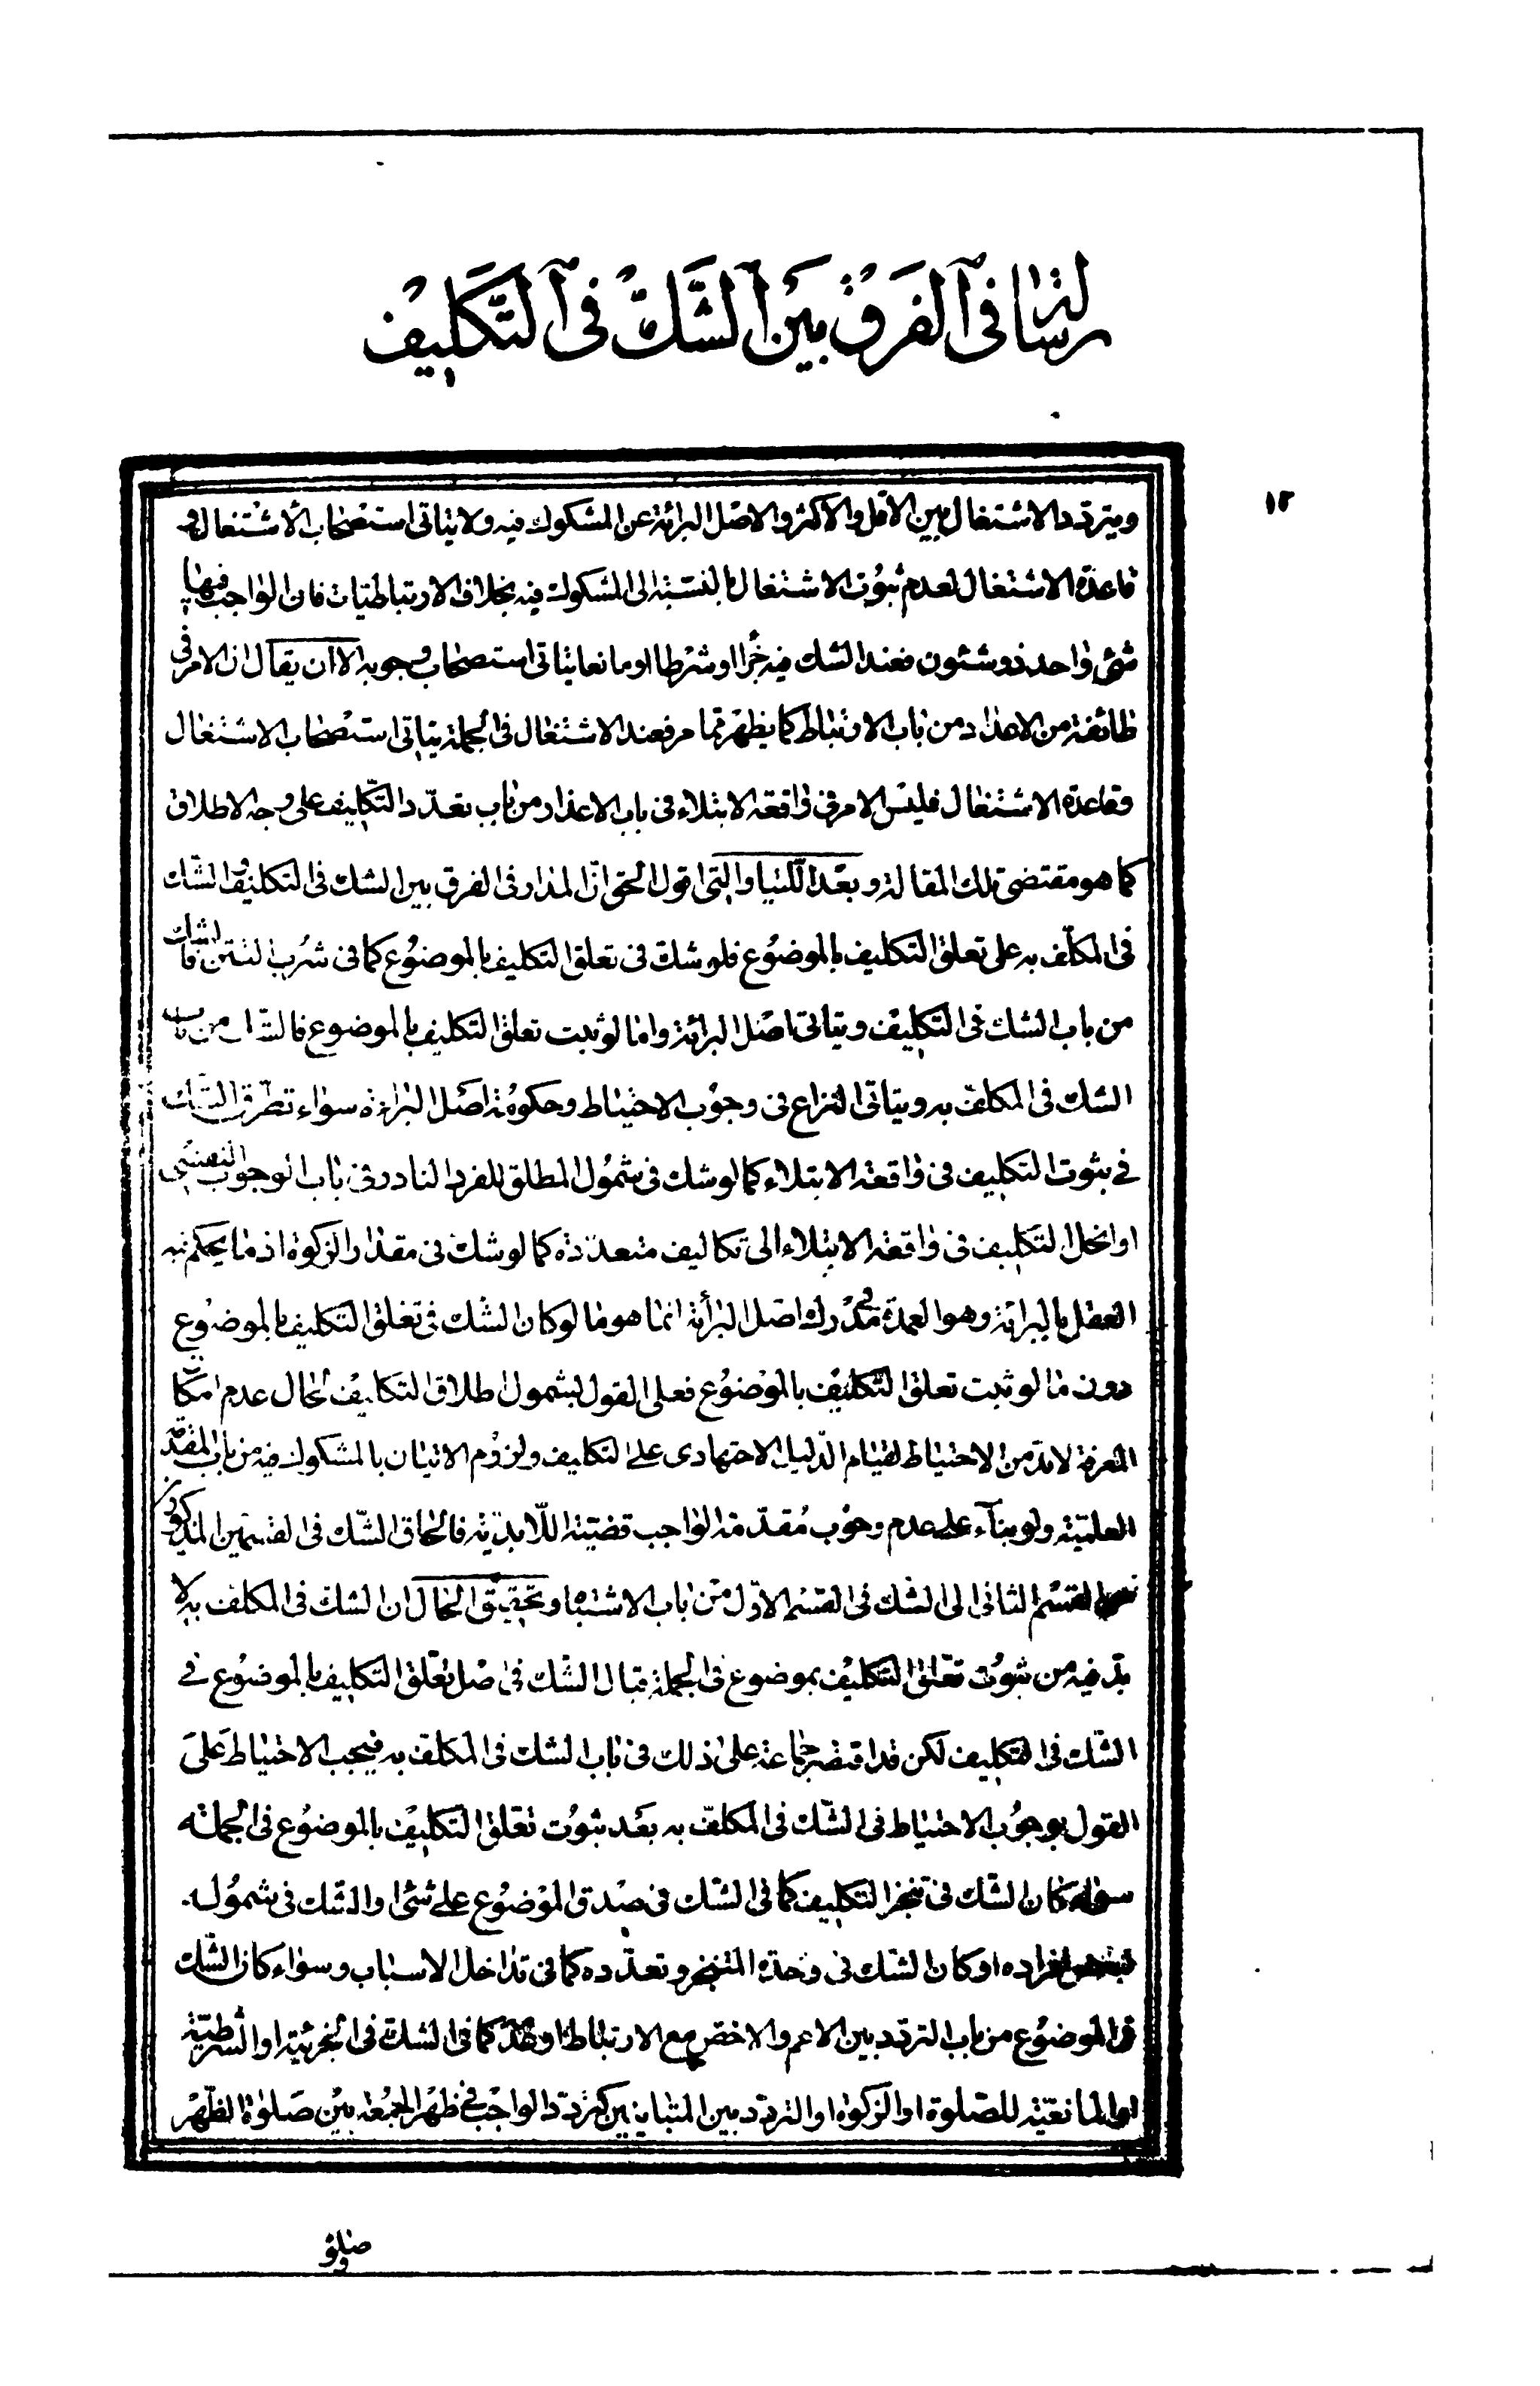 رسالة في الفرق بين الشك في التكليف
١٢
ويتردد الاشتغال بين الاقل والاكثر والاصل البرائة عن المشكوك فيه ولا يتاتى استصحاب الاشتغال و
قاعدة الاشتغال لعدم ثبوت الاشتغال بالنسبة الى المشكوك فيه بخلاف الارتباطيات فان الواجب فيها
شئ واحد ذو شئون فعند الشك فيه جزءا او شرطا او مانعا يتاتى استصحاب وجوبه الا ان يقال ان الامر في
طائفة من الاعذاد من باب الارتباط كما يظهر مما مر فعند الاشتغال في الجملة يتاتى استصحاب الاشتغال
وقاعدة الاشتغال فليس الامر في واقعة الابتلاء في باب الاعذار من باب تعدد التكليف على وجه الاطلاق
كما هو مقتضى تلك المقالة وبعد اللتيا والتى اقول الحق ان المدار في الفرق بين الشك في التكليف والشك
في المكلف به على تعلق التكليف بالموضوع فلو شك في تعلق التكليف بالموضوع كما في شرب التتن فالشك
من باب الشك في التكليف ويتاتى اصل البرائة واما لو ثبت تعلق التكليف بالموضوع فالشك من باب
الشك في المكلف به ويتاتى النزاع في وجوب الاحتياط وحكومة اصل البرائة سواء تطرق الشك
في ثبوت التكليف في واقعة الابتلاء كما لو شك في شمول المطلق للفرد النادر في باب الوجوب النفسي
او انحل التكليف في واقعة الابتلاء الى تكاليف متعددة كما لو شك في مقدار الزكوة اذ ما يحكم فيه
العقل بالبرائة وهو العمدة في مدرك اصل البرأئة انما هو ما لو كان الشك في تعلق التكليف بالموضوع
دون ما لو ثبت تعلق التكليف بالموضوع فعلى القول بشمول اطلاق التكاليف لحال عدم امكان
المعرفة لابد من الاحتياط لقيام الدليل الاجتهادى على التكليف ولزوم الاتيان بالمشكوك فيه من باب المقدمة
العلمية ولو بناء على عدم وجوب مقدمة الواجب قضية اللابدية فالحاق الشك في القسمين المذكورين
القسم الثانى الى الشك في القسم الاول من باب الاشتباه وتحقيق الحال ان الشك في المكلف به لا
بد فيه من ثبوت تعلق التكليف بموضوع في الجملة قبال الشك في اصل تعلق التكليف بالموضوع في
الشك في التكليف لكن قد اقتصر جماعة على ذلك في باب الشك في المكلف به فيجب الاحتياط على
القول بوجوب الاحتياط في الشك في المكلف به بعد ثبوت تعلق التكليف بالموضوع في الجملة
سواء كان الشك في تنجز التكليف كما في الشك في صدق الموضوع على شئ او الشك في شموله
لبعض افراده او كان الشك في وحدة المتنجز وتعدده كما في تداخل الاسباب وسواء كان الشك
في الموضوع من باب التردد بين الاعم والاخص مع الارتباط او عدمه كما في الشك في الجزئية او الشرطية
او المانعية للصلوة او الزكوة او التردد بين المتباينين كتردد الواجب في ظهر الجمعة بين صلوة الظهر
وصلوة